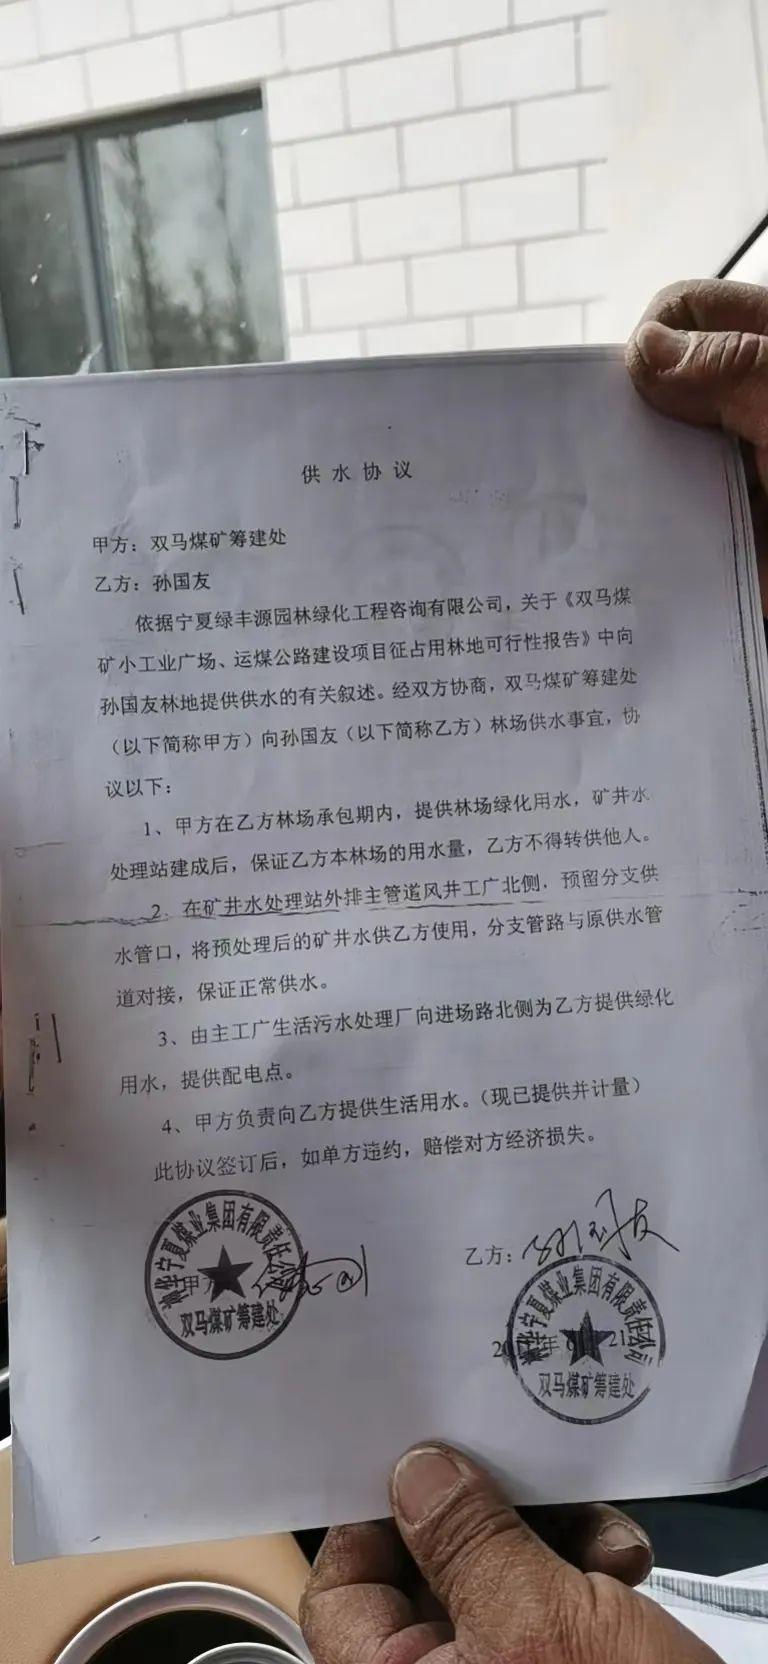 供水协议
甲方：双马煤矿筹建处
乙方：孙国友
依据宁夏绿丰源园林绿化工程咨询有限公司，关于《双马煤
矿小工业广场、运煤公路建设项目征占用林地可行性报告》中向
孙国友林地提供供水的有关叙述。经双方协商，双马煤矿筹建处
（以下简称甲方）向孙国友（以下简称乙方）林场供水事宜，协
议以下：
1、甲方在乙方林场承包期内，提供林场绿化用水，矿井水
处理站建成后，保证乙方本林场的用水量，乙方不得转供他人。
2、在矿井水处理站外排主管道风井工广北侧，预留分支供
水管口，将预处理后的矿井水供乙方使用，分支管路与原供水管
道对接，保证正常供水。
3、由主工广生活污水处理厂向进场路北侧为乙方提供绿化
用水，提供配电点。
4、甲方负责向乙方提供生活用水。（现已提供并计量）
此协议签订后，如单方违约，赔偿对方经济损失。
乙方：孙国友
甲方
神华宁夏煤业集团有限责任公司
双马煤矿筹建处
年 21
神华宁夏煤业集团有限责任公司
双马煤矿筹建处